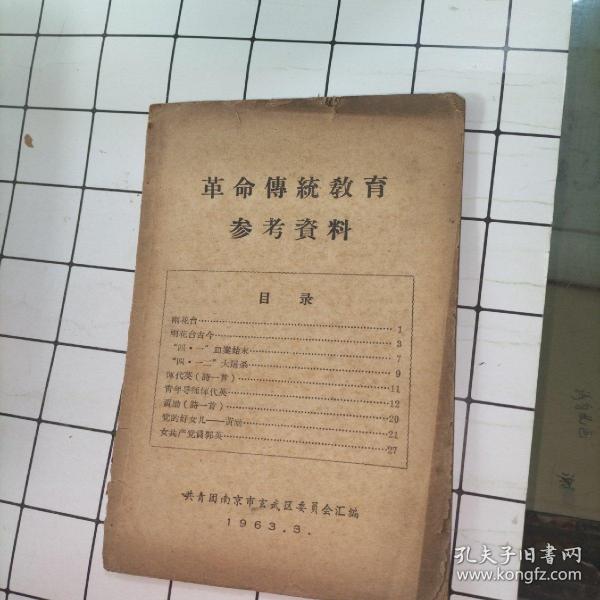 革命傳統敎育
参考資料
目 录
雨花台 1
雨花台古今 3
“四·一”血案始末 7
“四·一二”大屠杀 9
惲代英(詩一首) 11
青年导师惲代英 12
黄励(詩一首) 20
党的好女儿——黄励 21
女共产党員郭英 27
共青团南京市玄武区委員会汇編
1963.3.
孔夫子旧書网
www.kongfz.com